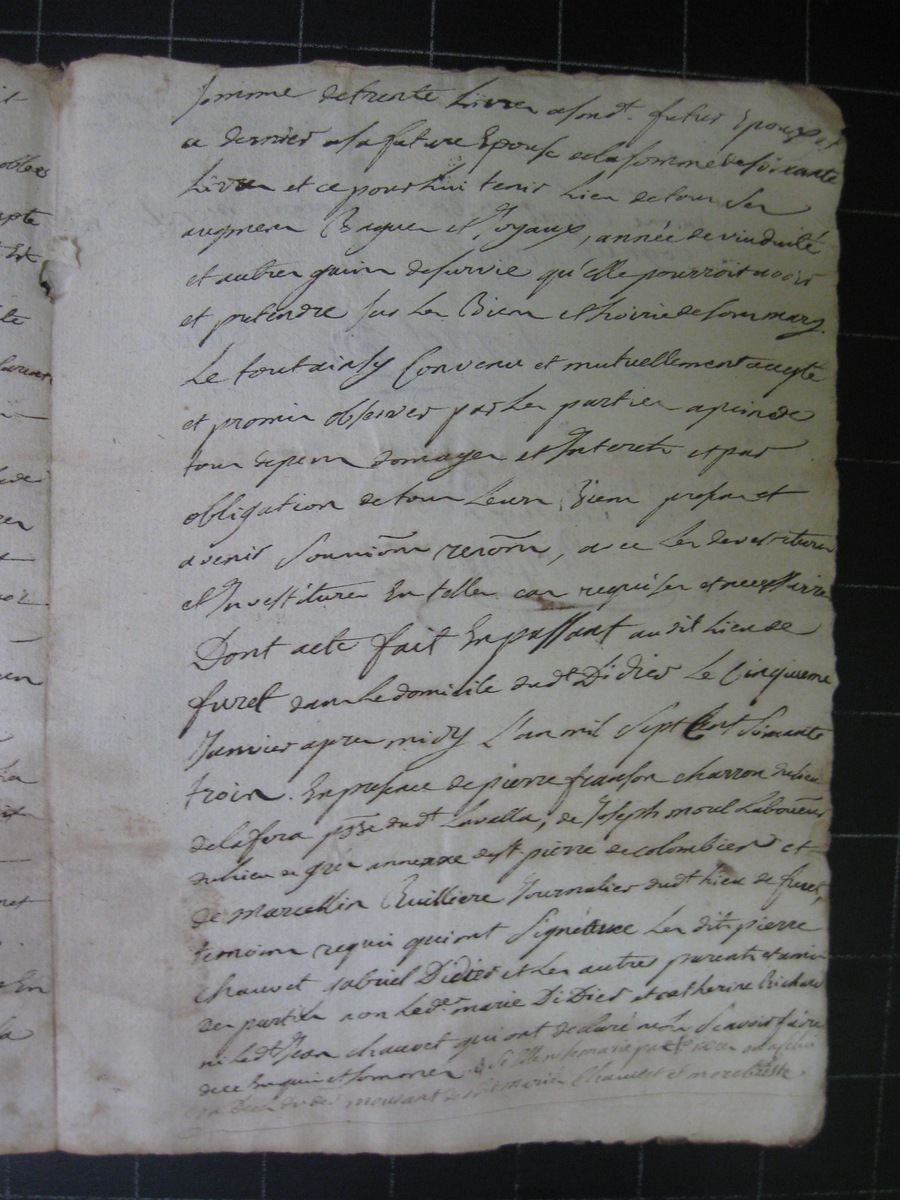 somme de trente Livres a sond. futur Epoux et
ce dernier a sa future Epouse de la somme de soixante
Livres et ce pour Lui tenir Lieu de tous ses
augmens Bagues et Joyaux, année de viuduité
et autres gains de survie qu'elle pourroit avoir
et pretendre sur Les Biens et hoirie de son mary.
Le tout ainsy Convenu et mutuellement accepté
et promis observer par Les parties a peine de
tous depens domages et Interets et par
obligation de tous Leurs Biens presens et
avenir Soumiõns renõns, avec Les devestitures
et Investitures En telles cas requises et necessaires
Dont acte fait En passant audit Lieu de
furet dans Le domicile dudt Didier Le Cinquieme
Janvier apres midy L'an mil sept Cent soixante
trois. En presence de pierre françon charron du lieu
de la fara psse dudt Lavalla, de Joseph moul Laboureur
du lieu de gré annexxe de st pierre de colombier et
de Marcellin Cuilliere Journalier dudt lieu de furet,
temoins requis qui ont Signé avec Les dits pierre
chauvet gabriel Didier et Les autres parents et amis
des parties non Led. marie Didier et catherine Richard
ni Ledt Jean chauvet qui ont declaré ne le Scavoir faire
de ce Enquis et sommés